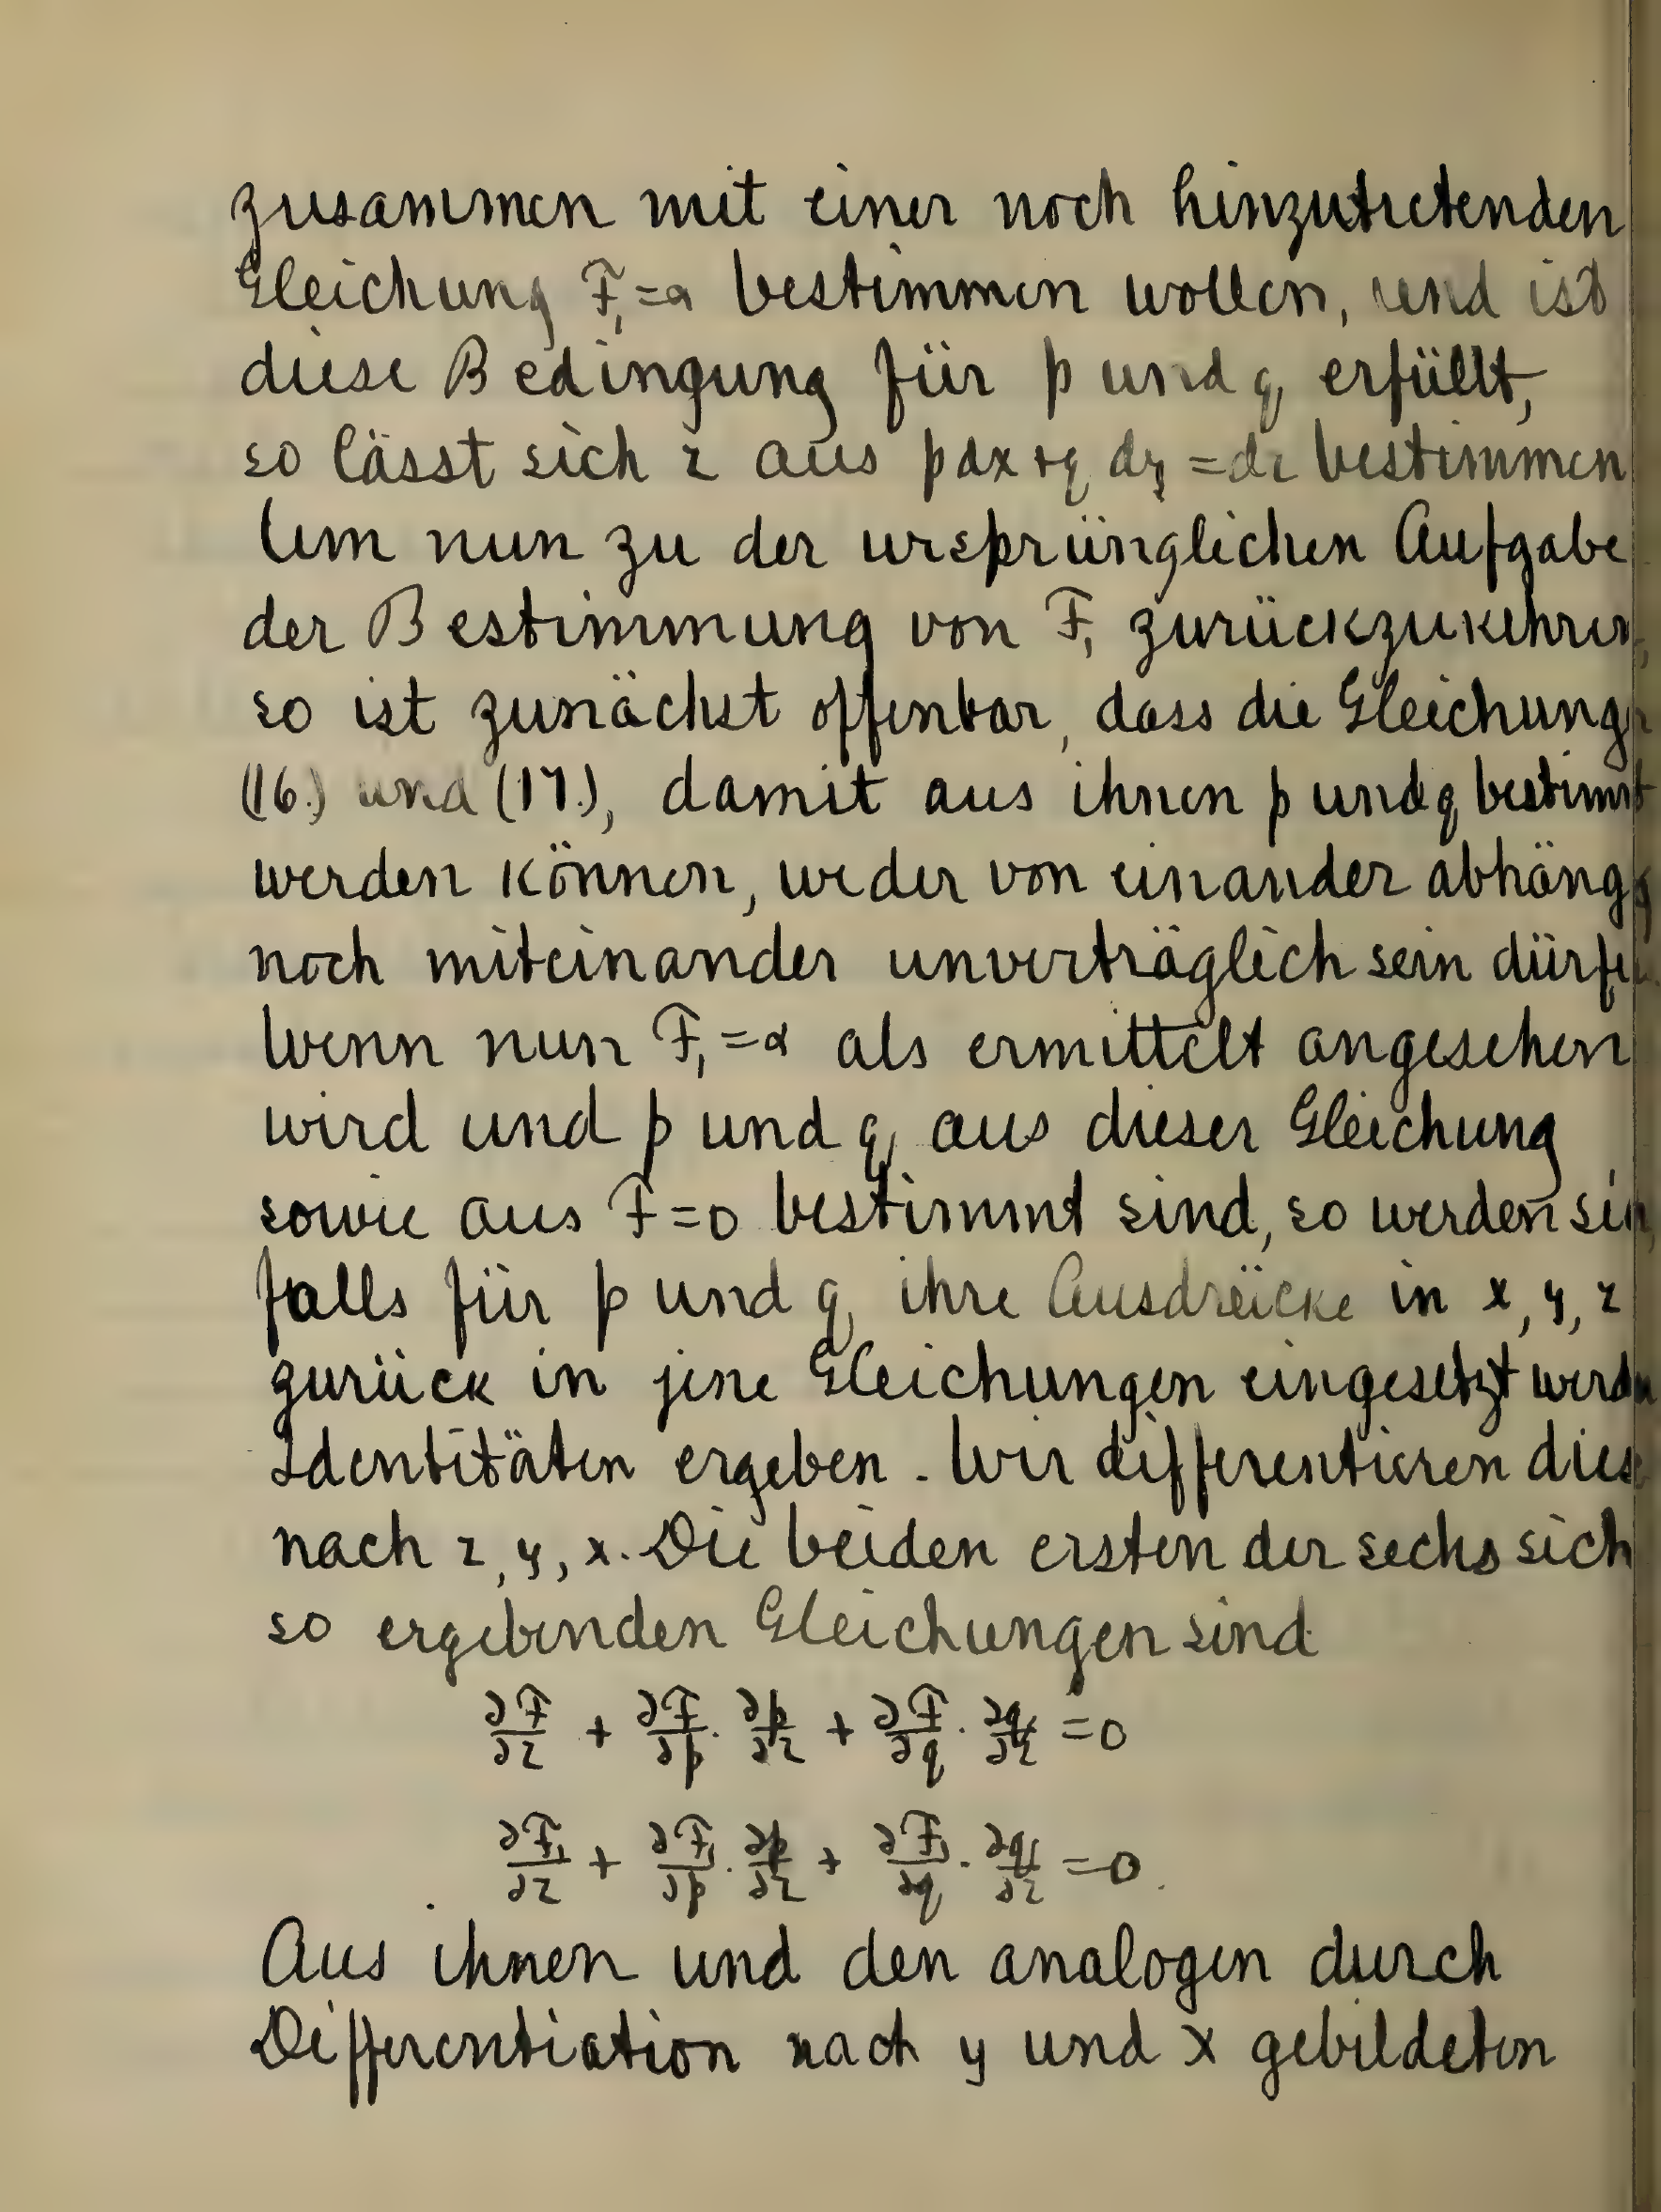 zusammen mit einer noch hinzutretenden
Gleichung F₁=a bestimmen wollen, und ist
diese Bedingung für p und q erfüllt,
so lässt sich z aus p dx + q dy = dz bestimmen
Um nun zu der ursprünglichen Aufgabe
der Bestimmung von F₁ zurückzukehren,
so ist zunächst offenbar, dass die Gleichungn
(16.) und (17.), damit aus ihnen p und q bestimmt
werden können, weder von einander abhängg
noch miteinander unverträglich sein dürfen.
Wenn nun F₁=α als ermittelt angesehen
wird und p und q aus dieser Gleichung
sowie aus F=0 bestimmt sind, so werden sie,
falls für p und q ihre Ausdrücke in x, y, z
zurück in jene Gleichungen eingesetzt werden
Identitäten ergeben. Wir differentieren diese
nach z, y, x. Die beiden ersten der sechs sich
so ergebenden Gleichungen sind
∂F/∂z + ∂F/∂p · ∂p/∂z + ∂F/∂q · ∂q/∂z = 0
∂F₁/∂z + ∂F₁/∂p · ∂p/∂z + ∂F₁/∂q · ∂q/∂z = 0.
Aus ihnen und den analogen durch
Differentiation nach y und x gebildeten